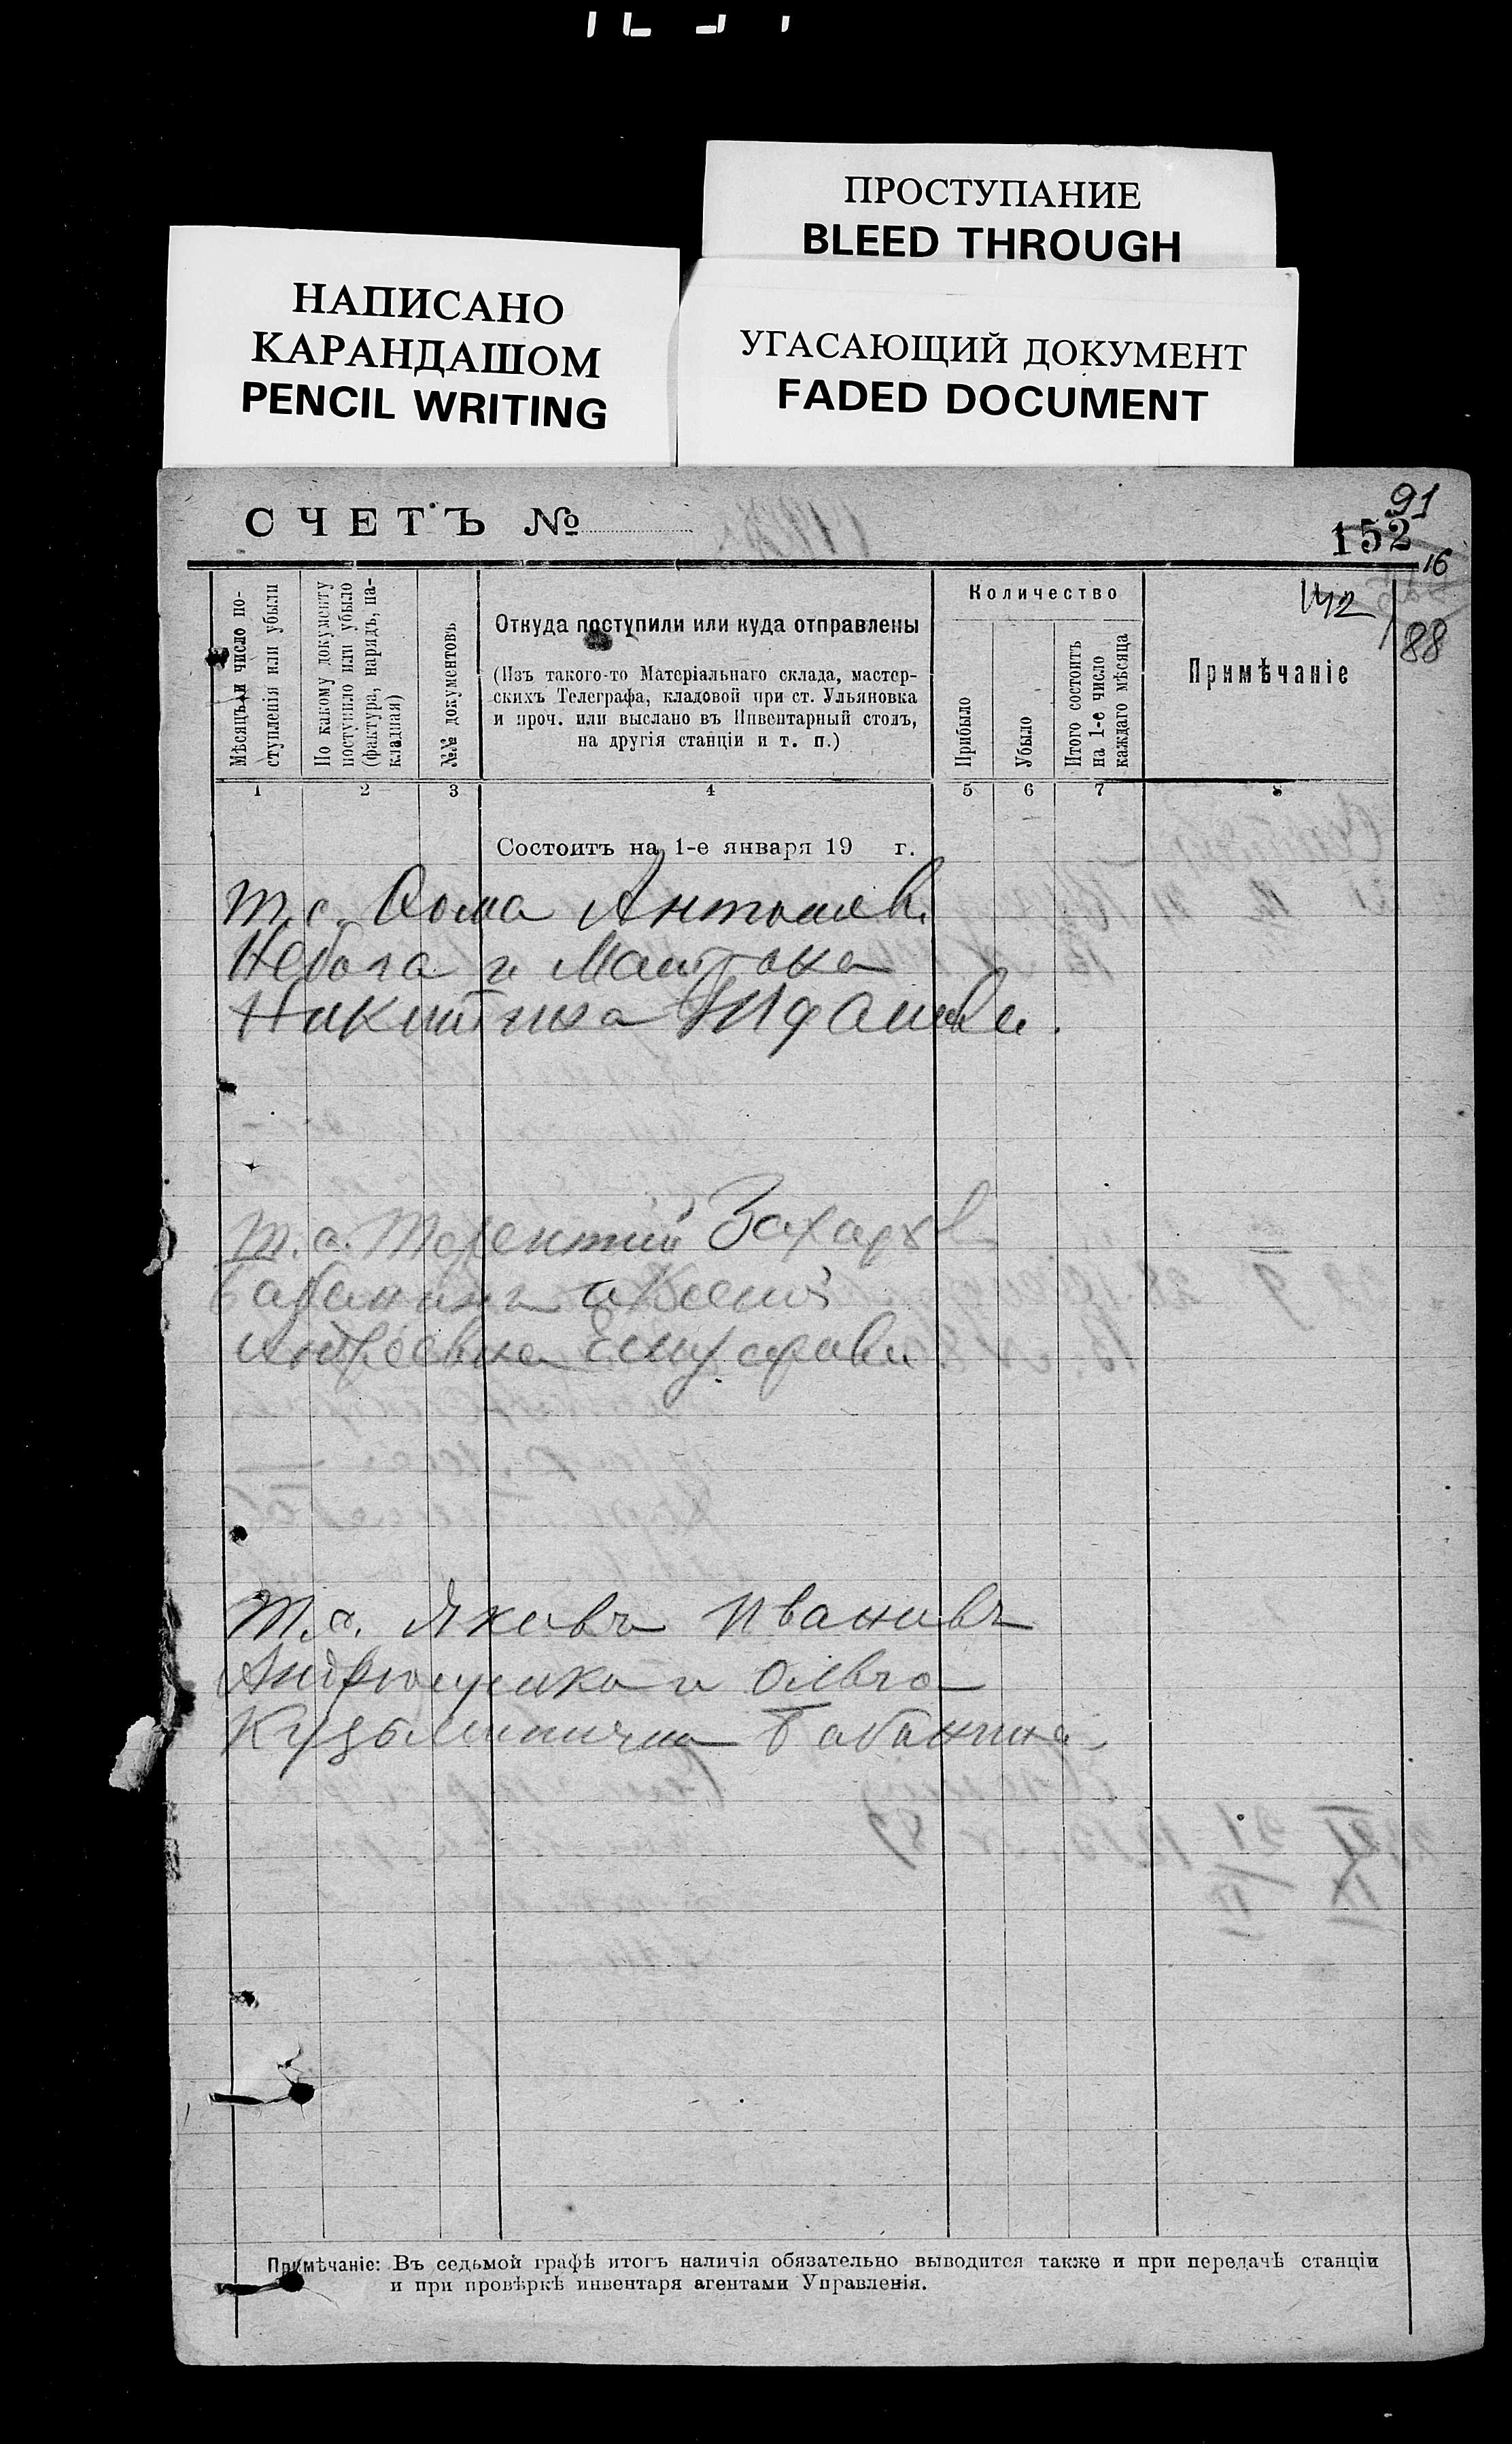 ПРОСТУПАНИЕ
BLEED THROUGH
НАПИСАНО
КАРАНДАШОМ
PENCIL WRITING
УГАСАЮЩИЙ ДОКУМЕНТ
FADED DOCUMENT
СЧЕТЪ №
91
152
16
142
88
Мѣсяцъ и число по-
ступленія или убыли
По какому документу
поступило или убыло
(фактура, нарядъ, на-
кладная)
№№ документовъ
Откуда поступили или куда отправлены
(Изъ такого-то Матеріальнаго склада, мастер-
скихъ Телеграфа, кладовой при ст. Ульяновка
и проч. или выслано въ Инвентарный столъ,
на другія станціи и т. п.)
Количество
Прибыло
Убыло
Итого состоитъ
на 1-е число
каждаго мѣсяца
Примѣчаніе
1 2 3 4 5 6 7 8
Состоитъ на 1-е января 19 г.
т.с. Фома Антоновъ
Небога и
Никитина
т.а. Терентий Захаров
Бабанинъ и
Андреевна
т.а. Яковъ Ивановъ
Андрющенко и Ольга
Кузьминична Бабанина
Примѣчаніе: Въ седьмой графѣ итогъ наличія обязательно выводится также и при передачѣ станціи
и при провѣркѣ инвентаря агентами Управленія.